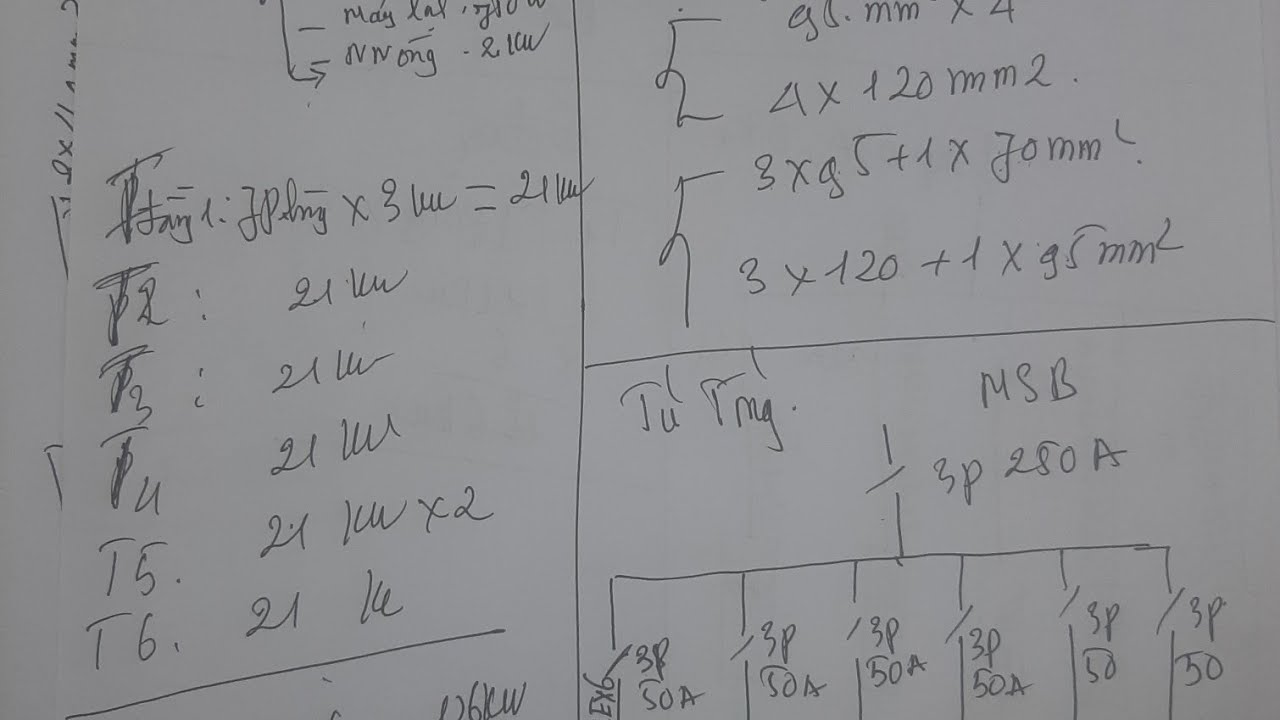 - Máy lạt. 750W
- NN nóng - 2KW
T tầng 1: 7 phòng x 3 kw = 21 kw
T2 : 21 kw
T3 : 21 kw
T4 21 kw
T5. 21 kw x 2
T6. 21 k
126KW
95. mm x 4
4 x 120 mm2.
3 x 95 + 1 x 70mm².
3 x 120 + 1 x 95mm²
Tủ Tổng. MSB
3p 250A
3p 3p 3p 3p 3p 3p
50A 50A 50A 50A 50 50
EX6